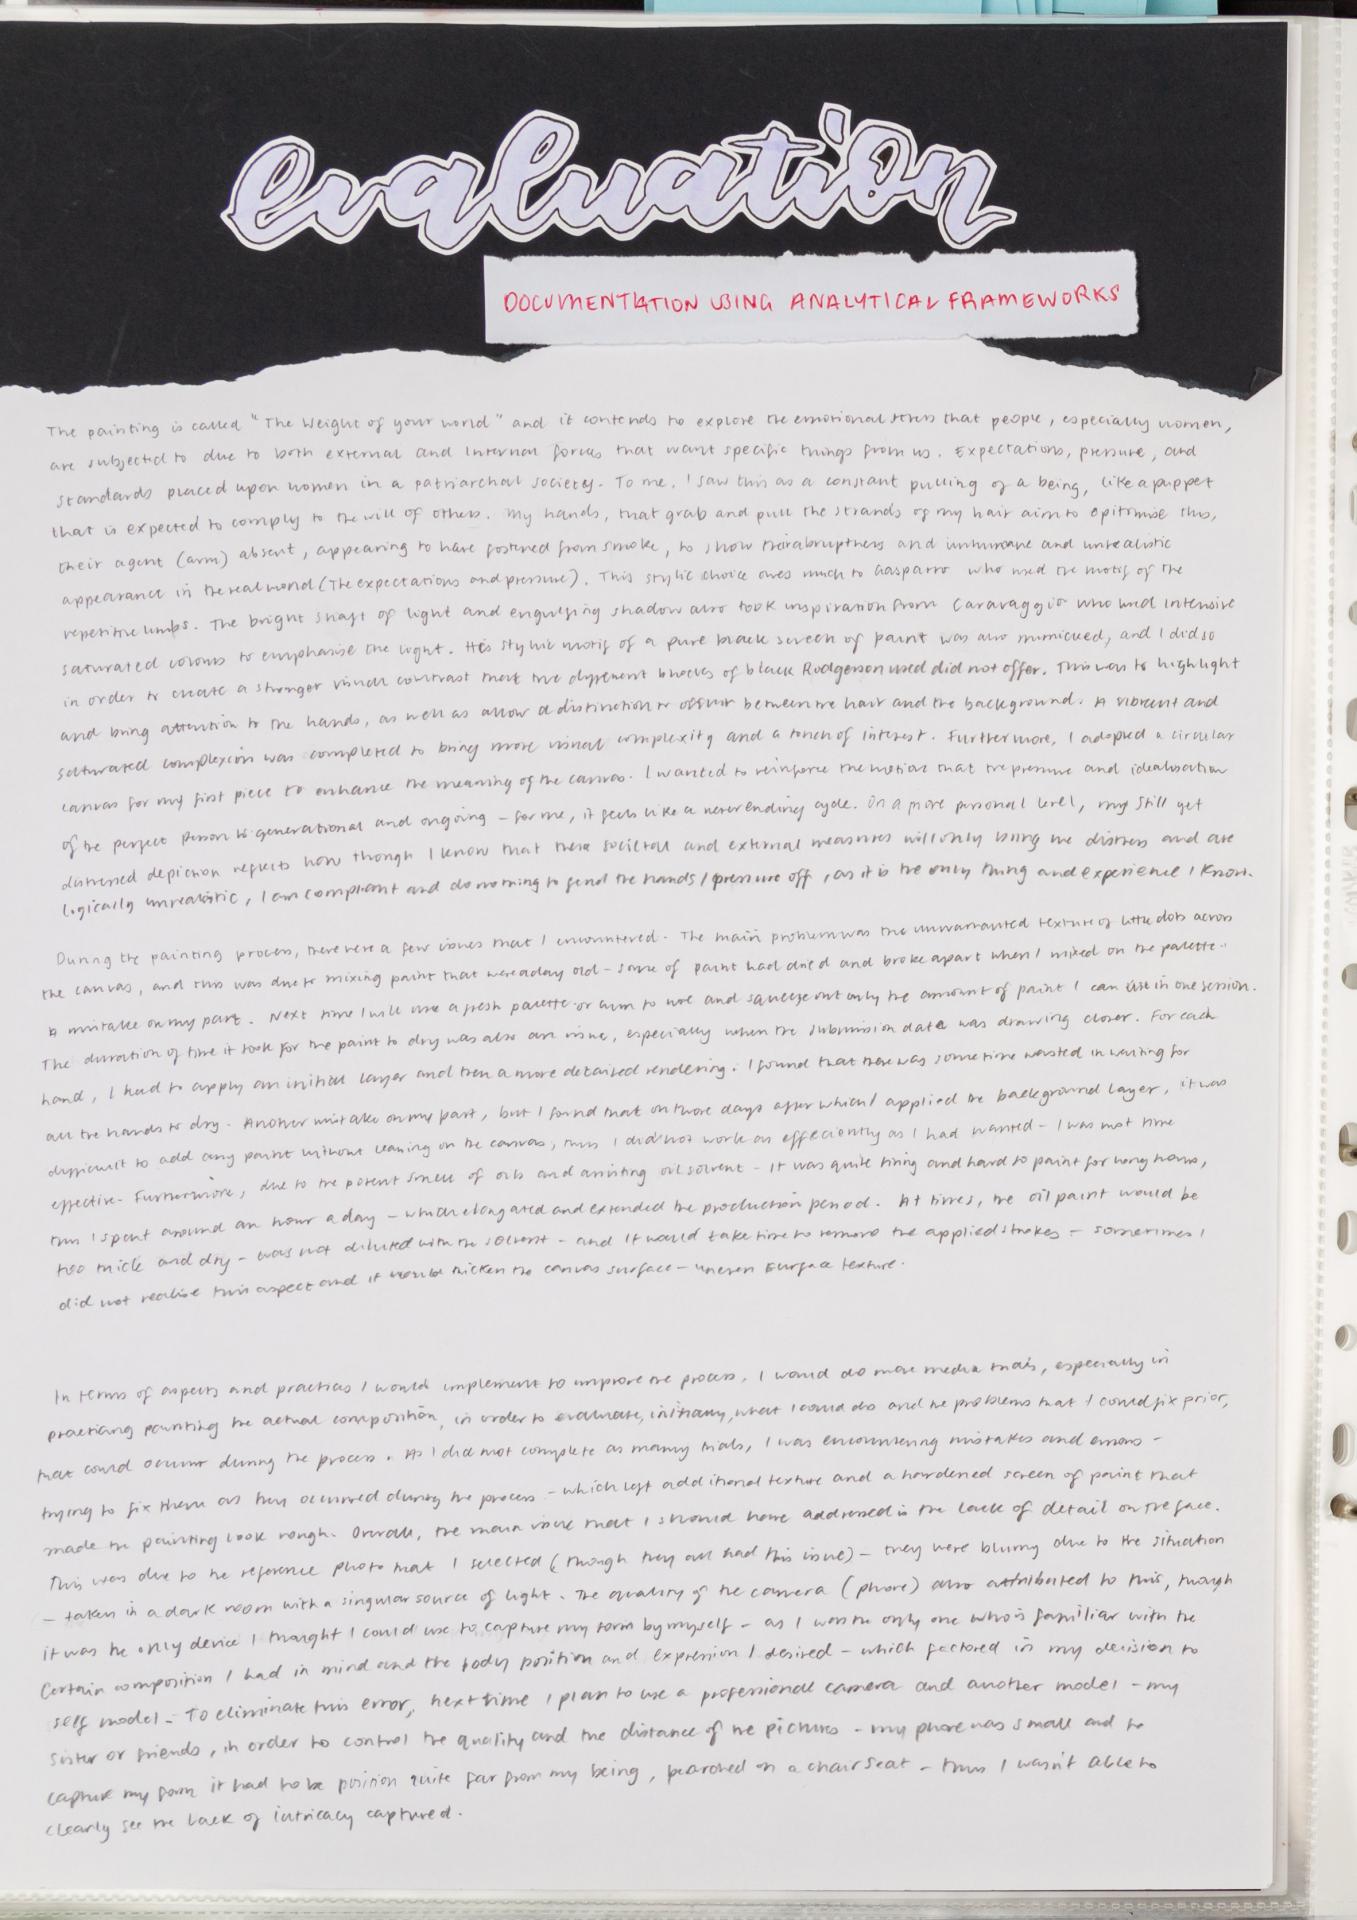 evaluation
DOCUMENTATION USING ANALYTICAL FRAMEWORKS
The painting is called "The Weight of your world" and it contends to explore the emotional stress that people, especially women,
are subjected to due to both external and internal forces that want specific things from us. Expectations, pressure, and
standards placed upon women in a patriarchal society. To me, I saw this as a constant pulling of a being, like a puppet
that is expected to comply to the will of others. My hands, that grab and pull the strands of my hair aim to epitimise this,
their agent (arm) absent, appearing to have fostered from smoke, to show their abruptness and inhumane and unrealistic
appearance in the real world (The expectations and pressure). This stylic choice owes much to Gasparro who used the motif of the
repetitive limbs. The bright shaft of light and engulfing shadow also took inspiration from Caravaggio who used intensive
saturated colours to emphasise the light. His stylistic motif of a pure black screen of paint was also mimicked, and I did so
in order to create a stronger visual contrast that the different blocks of black Rodgerson used did not offer. This was to highlight
and bring attention to the hands, as well as allow a distinction to occur between the hair and the background. A vibrant and
saturated complexion was completed to bring more visual complexity and a touch of interest. Furthermore, I adopted a circular
canvas for my first piece to enhance the meaning of the canvas. I wanted to reinforce the notion that the pressure and idealisation
of the perfect person is generational and ongoing - for me, it feels like a never ending cycle. On a more personal level, my still yet
distressed depiction reflects how though I know that these societal and external measures will only bring me distress and are
logically unrealistic, I am compliant and do nothing to fend the hands / pressure off, as it is the only thing and experience I know.
During the painting process, there were a few issues that I encountered. The main problem was the unwarranted texture of little dots across
the canvas, and this was due to mixing paint that were a day old - some of paint had dried and broke apart when I mixed on the palette -
a mistake on my part. Next time I will use a fresh palette or aim to use and squeeze out only the amount of paint I can use in one session.
The duration of time it took for the paint to dry was also an issue, especially when the submission date was drawing closer. For each
hand, I had to apply an initial layer and then a more detailed rendering. I found that there was some time wasted in waiting for
all the hands to dry. Another mistake on my part, but I found that on those days after which I applied the background layer, it was
difficult to add any paint without leaning on the canvas, thus I did not work as effeciently as I had wanted - I was not time
effective. Furthermore, due to the potent smell of oils and assisting oil solvent - it was quite tiring and hard to paint for long hours,
thus I spent around an hour a day - which elongated and extended the production period. At times, the oil paint would be
too thick and dry - was not diluted with the solvent - and it would take time to remove the applied strokes - sometimes I
did not realise this aspect and it would thicken the canvas surface - uneven surface texture.
In terms of aspects and practices I would implement to improve the process, I would do more media trials, especially in
practicing painting the actual composition, in order to evaluate, initially, what I could do and the problems that I could fix prior,
that could occur during the process. As I did not complete as many trials, I was encountering mistakes and errors -
trying to fix them as they occurred during the process - which left additional texture and a hardened screen of paint that
made the painting look rough. Overall, the main issue that I should have addressed is the lack of detail on the face.
This was due to the reference photo that I selected (though they all had this issue) - they were blurry due to the situation
- taken in a dark room with a singular source of light. The quality of the camera (phone) also attributed to this, though
it was the only device I thought I could use to capture my form by myself - as I was the only one who is familiar with the
certain composition I had in mind and the body position and expression I desired - which factored in my decision to
self model. To eliminate this error, next time I plan to use a professional camera and another model - my
sister or friends, in order to control the quality and the distance of the pictures - my phone was small and to
capture my form it had to be position quite far from my being, pearched on a chair seat - thus I wasn't able to
clearly see the lack of intricacy captured.